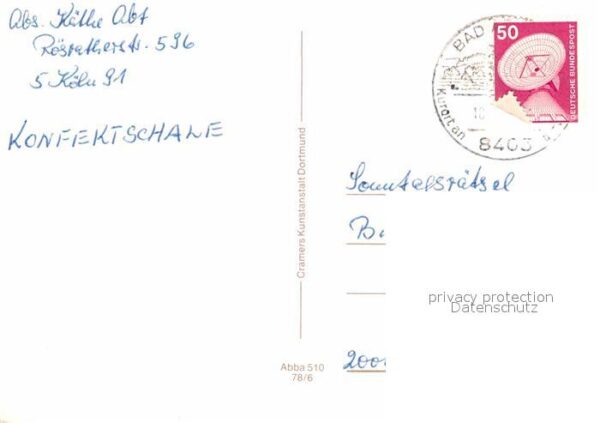 Abs. Käthe Abt
Rösratherstr. 596
5 Köln 91
KONFEKTSCHALE
Cramers Kunstanstalt Dortmund
Abba 510
78/6
BAD
Kurort an
8403
50
DEUTSCHE BUNDESPOST
Sonntagsrätsel
privacy protection
Datenschutz